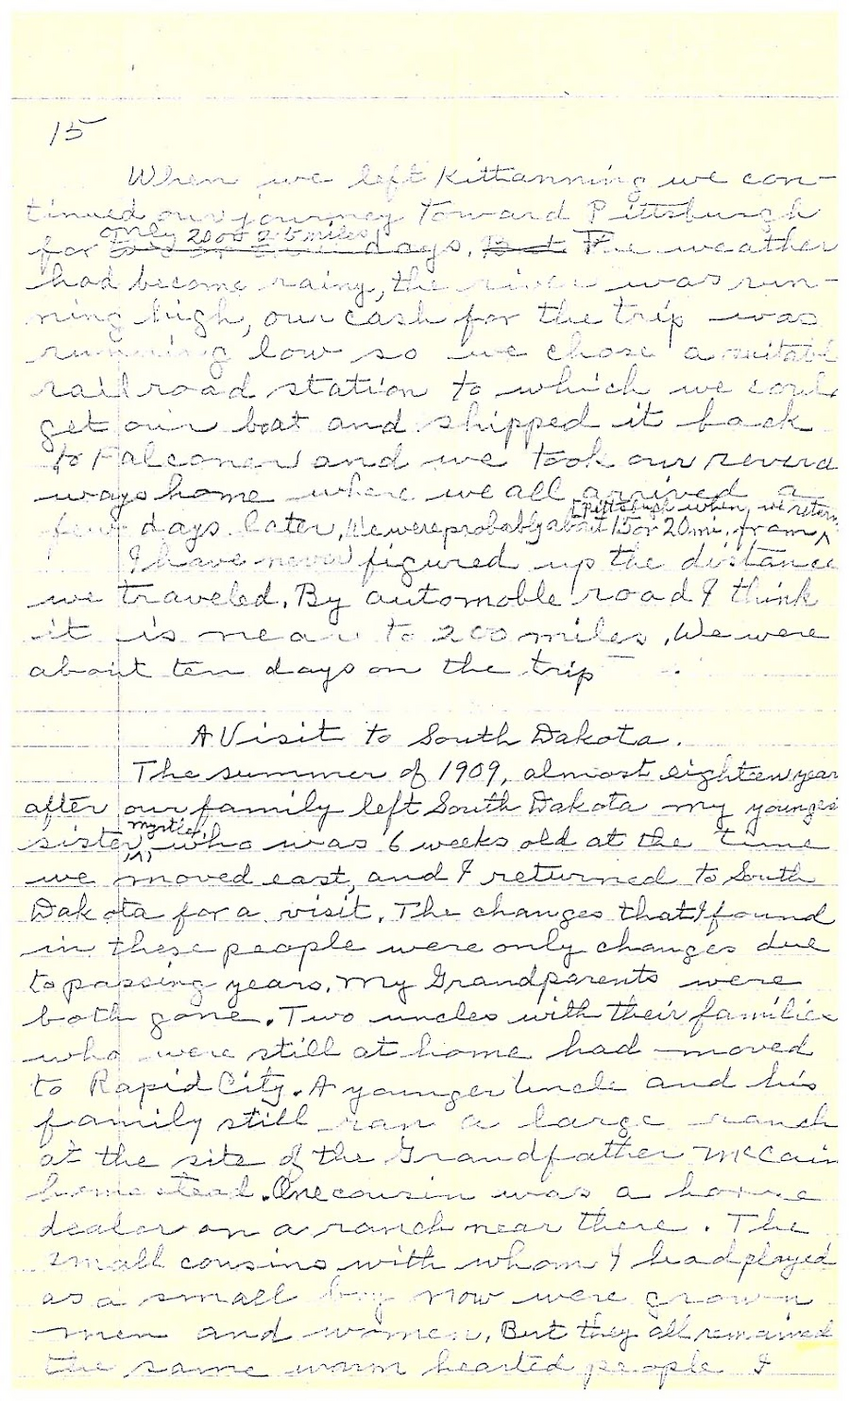 15
When we left Kittanning we con-
tinued our journey toward Pittsburgh
only 20 or 25 miles
for days. But The weather
had become rainy, the river was run-
ning high, our cash for the trip was
running low so we chose a suitabl
railroad station to which we could
get our boat and shipped it back
to Falconer and we took our several
ways home where we all arrived a
[Pittsburgh when we return
few days later. We were probably about 15 or 20 mi. from ^
I have never figured up the distance
we traveled. By automoble road I think
it is near to 200 miles. We were
about ten days on the trip
A Visit to South Dakota.
The summer of 1909, almost eighteen year
after our family left South Dakota my younges
Myrtle,
sister ^ who was 6 weeks old at the time
we moved east, and I returned to South
Dakota for a visit. The changes that I found
in these people were only changes due
to passing years. My Grandparents were
both gone. Two uncles with their families
who were still at home had moved
to Rapid City. A younger Uncle and his
family still ran a large ranch
at the site of the Grandfather McCain
homestead. One cousin was a horse
dealer on a ranch near there. The
small cousins with whom I had played
as a small boy now were grown
men and women. But they all remained
the same warm hearted people I